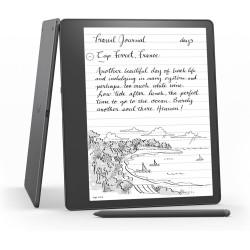 Travel Journal day 3
Cap Ferret, France
Another beautiful day of lake life
and indulging in many oysters and
perhaps, too much white wine.
Low tide after lunch, the perfect
time to go to the ocean. Barely
another soul there. Heaven!